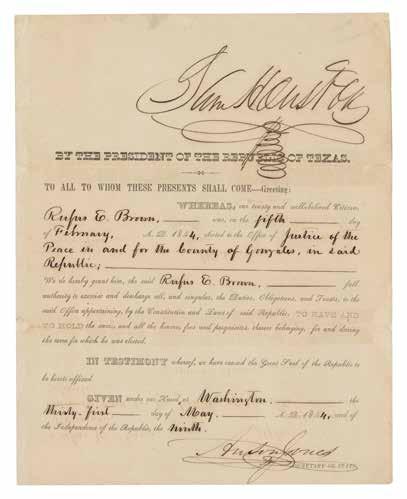 Sam Houston
BY THE PRESIDENT OF THE REPUBLIC OF TEXAS.
TO ALL TO WHOM THESE PRESENTS SHALL COME—Greeting:
WHEREAS, our trusty and well-beloved Citizen,
Rufus E. Brown, was, on the fifth day
of February, A. D. 1844, elected to the Office of Justice of the
Peace in and for the County of Gonzales, in said
Republic;
We do hereby grant him, the said Rufus E. Brown, full
authority to exercise and discharge all, and singular, the Duties, Obligations, and Trusts, to the
said Office appertaining, by the Constitution and Laws of said Republic, TO HAVE AND
TO HOLD the same, and all the honors, fees and perquisites thereto belonging, for and during
the term for which he was elected.
IN TESTIMONY whereof, we have caused the Great Seal of the Republic to
be hereto affixed.
GIVEN under our Hand, at Washington the
thirty-first day of May A. D. 1844, and of
the Independence of the Republic, the Ninth.
Anson Jones
SECRETARY OF STATE